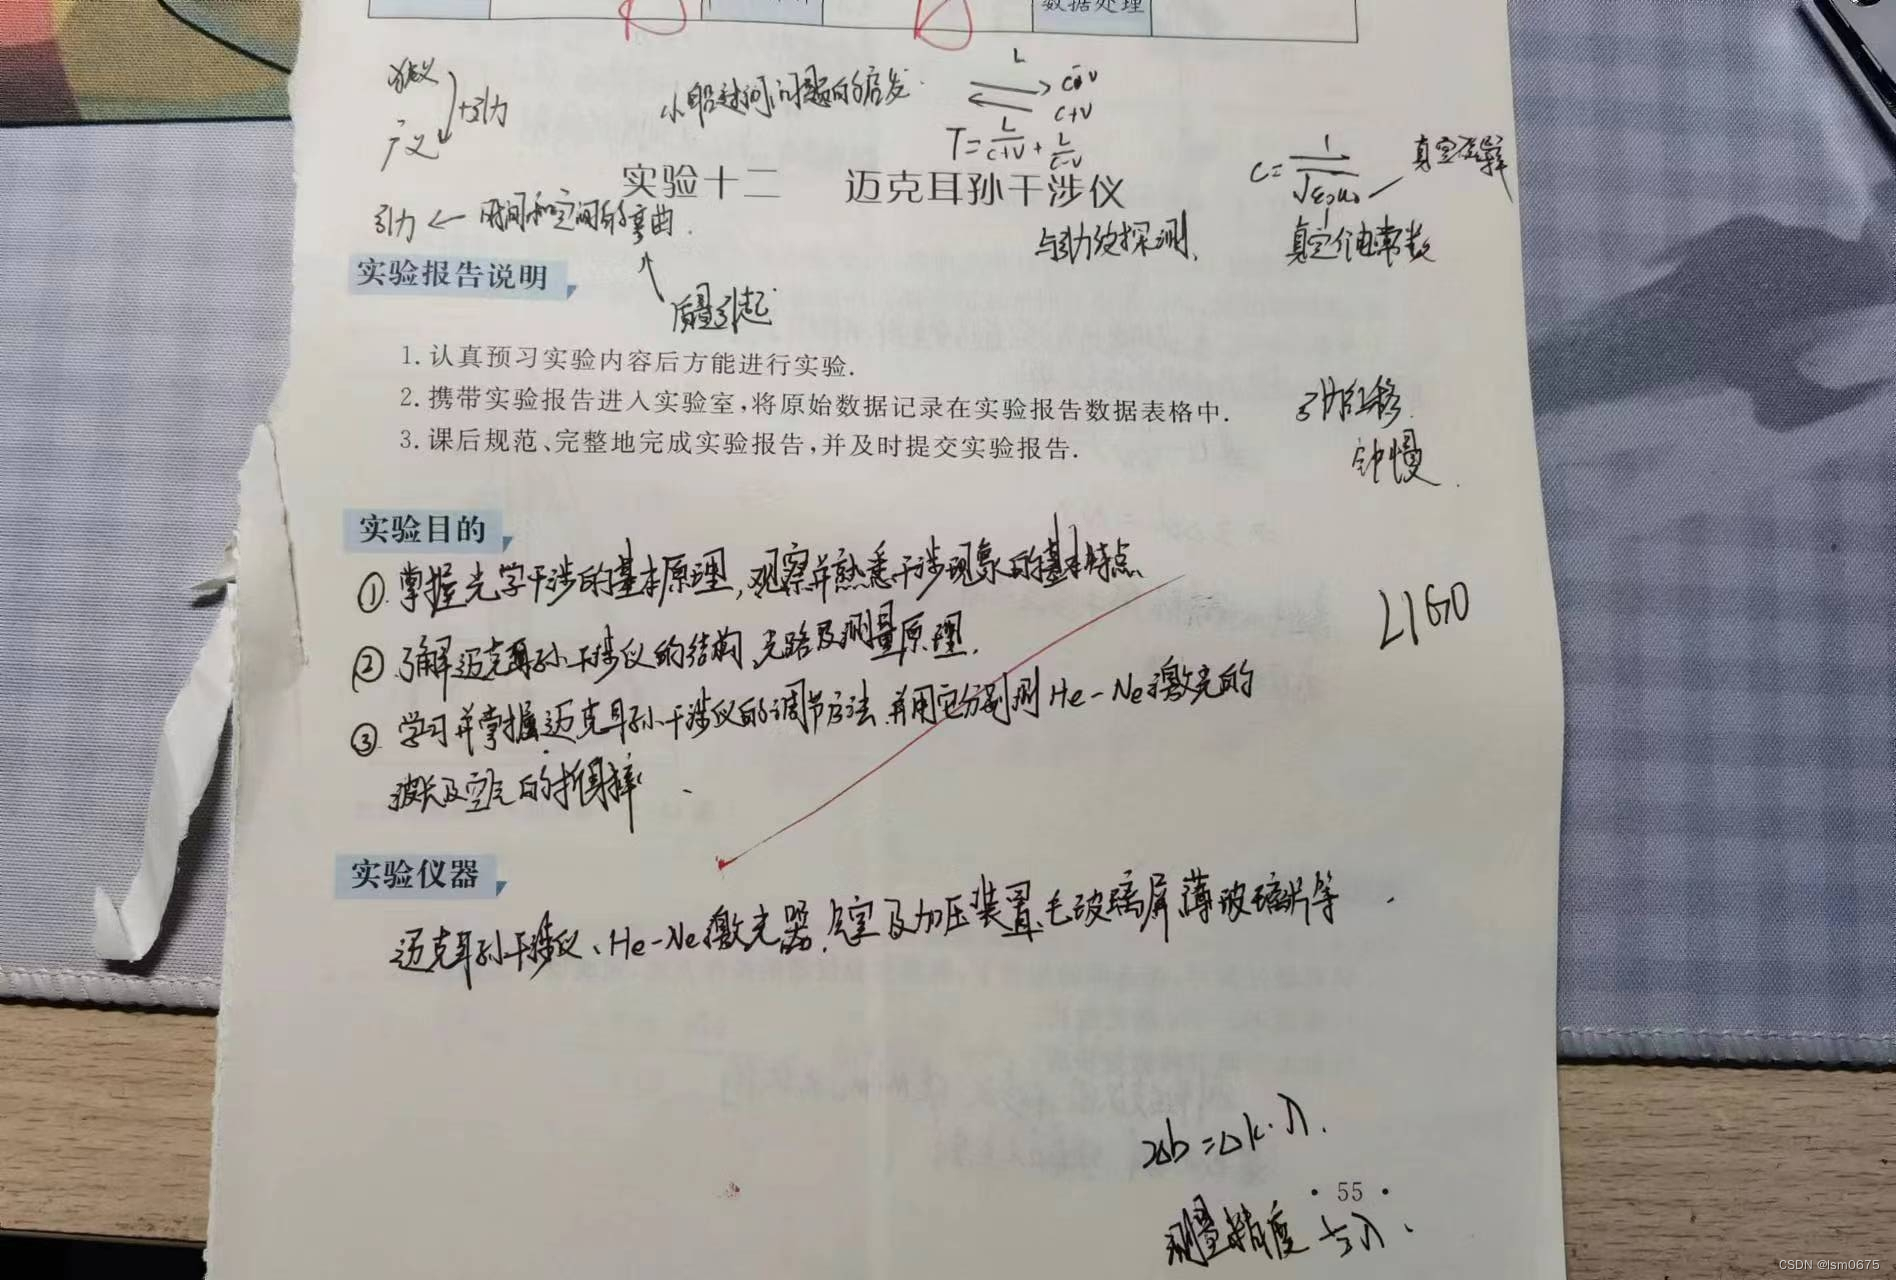 数据处理
狭义
+引力
广义
小船过河问题的启发.
L
c-v
c+v
T=L/(c+v)+L/(c-v)
实验十二 迈克耳孙干涉仪
c=1/√ε₀μ₀
真空介电常数
引力←时间和空间的弯曲.
与引力波探测.
质量引起
实验报告说明
1.认真预习实验内容后方能进行实验.
2.携带实验报告进入实验室,将原始数据记录在实验报告数据表格中.
3.课后规范、完整地完成实验报告,并及时提交实验报告.
引力红移.
钟慢.
实验目的
①.掌握光学干涉的基本原理,观察并熟悉干涉现象的基本特点.
②.了解迈克耳孙干涉仪的结构、光路及测量原理.
LIGO
③.学习并掌握迈克耳孙干涉仪的调节方法,并用它分别测He-Ne激光的
波长及空气的折射率.
实验仪器
迈克耳孙干涉仪、He-Ne激光器、气室及加压装置、毛玻璃屏、薄玻璃片等.
2Δh=Δk·λ.
· 55 ·
测量精度与λ.
CSDN @lsm0675